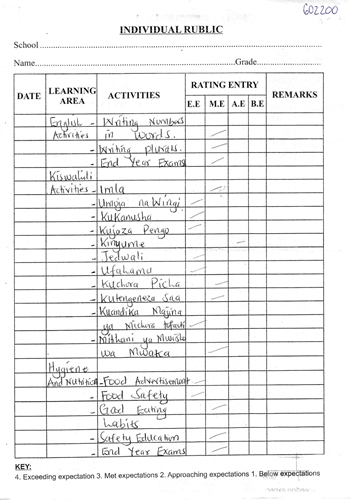 602200
INDIVIDUAL RUBLIC
School
Name Grade
DATE LEARNING AREA ACTIVITIES RATING ENTRY REMARKS
E.E M.E A.E B.E
English - Writing Numbers
Activities in Words.
- Writing plurals.
- End Year Exams
Kiswahili
Activities - Imla
- Umoja na Wingi
- Kukanusha
- Kujaza Pengo
- Kinyume
- Jedwali
- Ufahamu
- Kuchora Picha
- Kutengeneza Saa
- Kuandika Majina
ya Michoro
- Mtihani ya Mwisho
wa Mwaka
Hygiene
And Nutrition - Food Advertisement
- Food Safety
- Good Eating
habits
- Safety Education
- End Year Exams
KEY:
4. Exceeding expectation 3. Met expectations 2. Approaching expectations 1. Below expectations